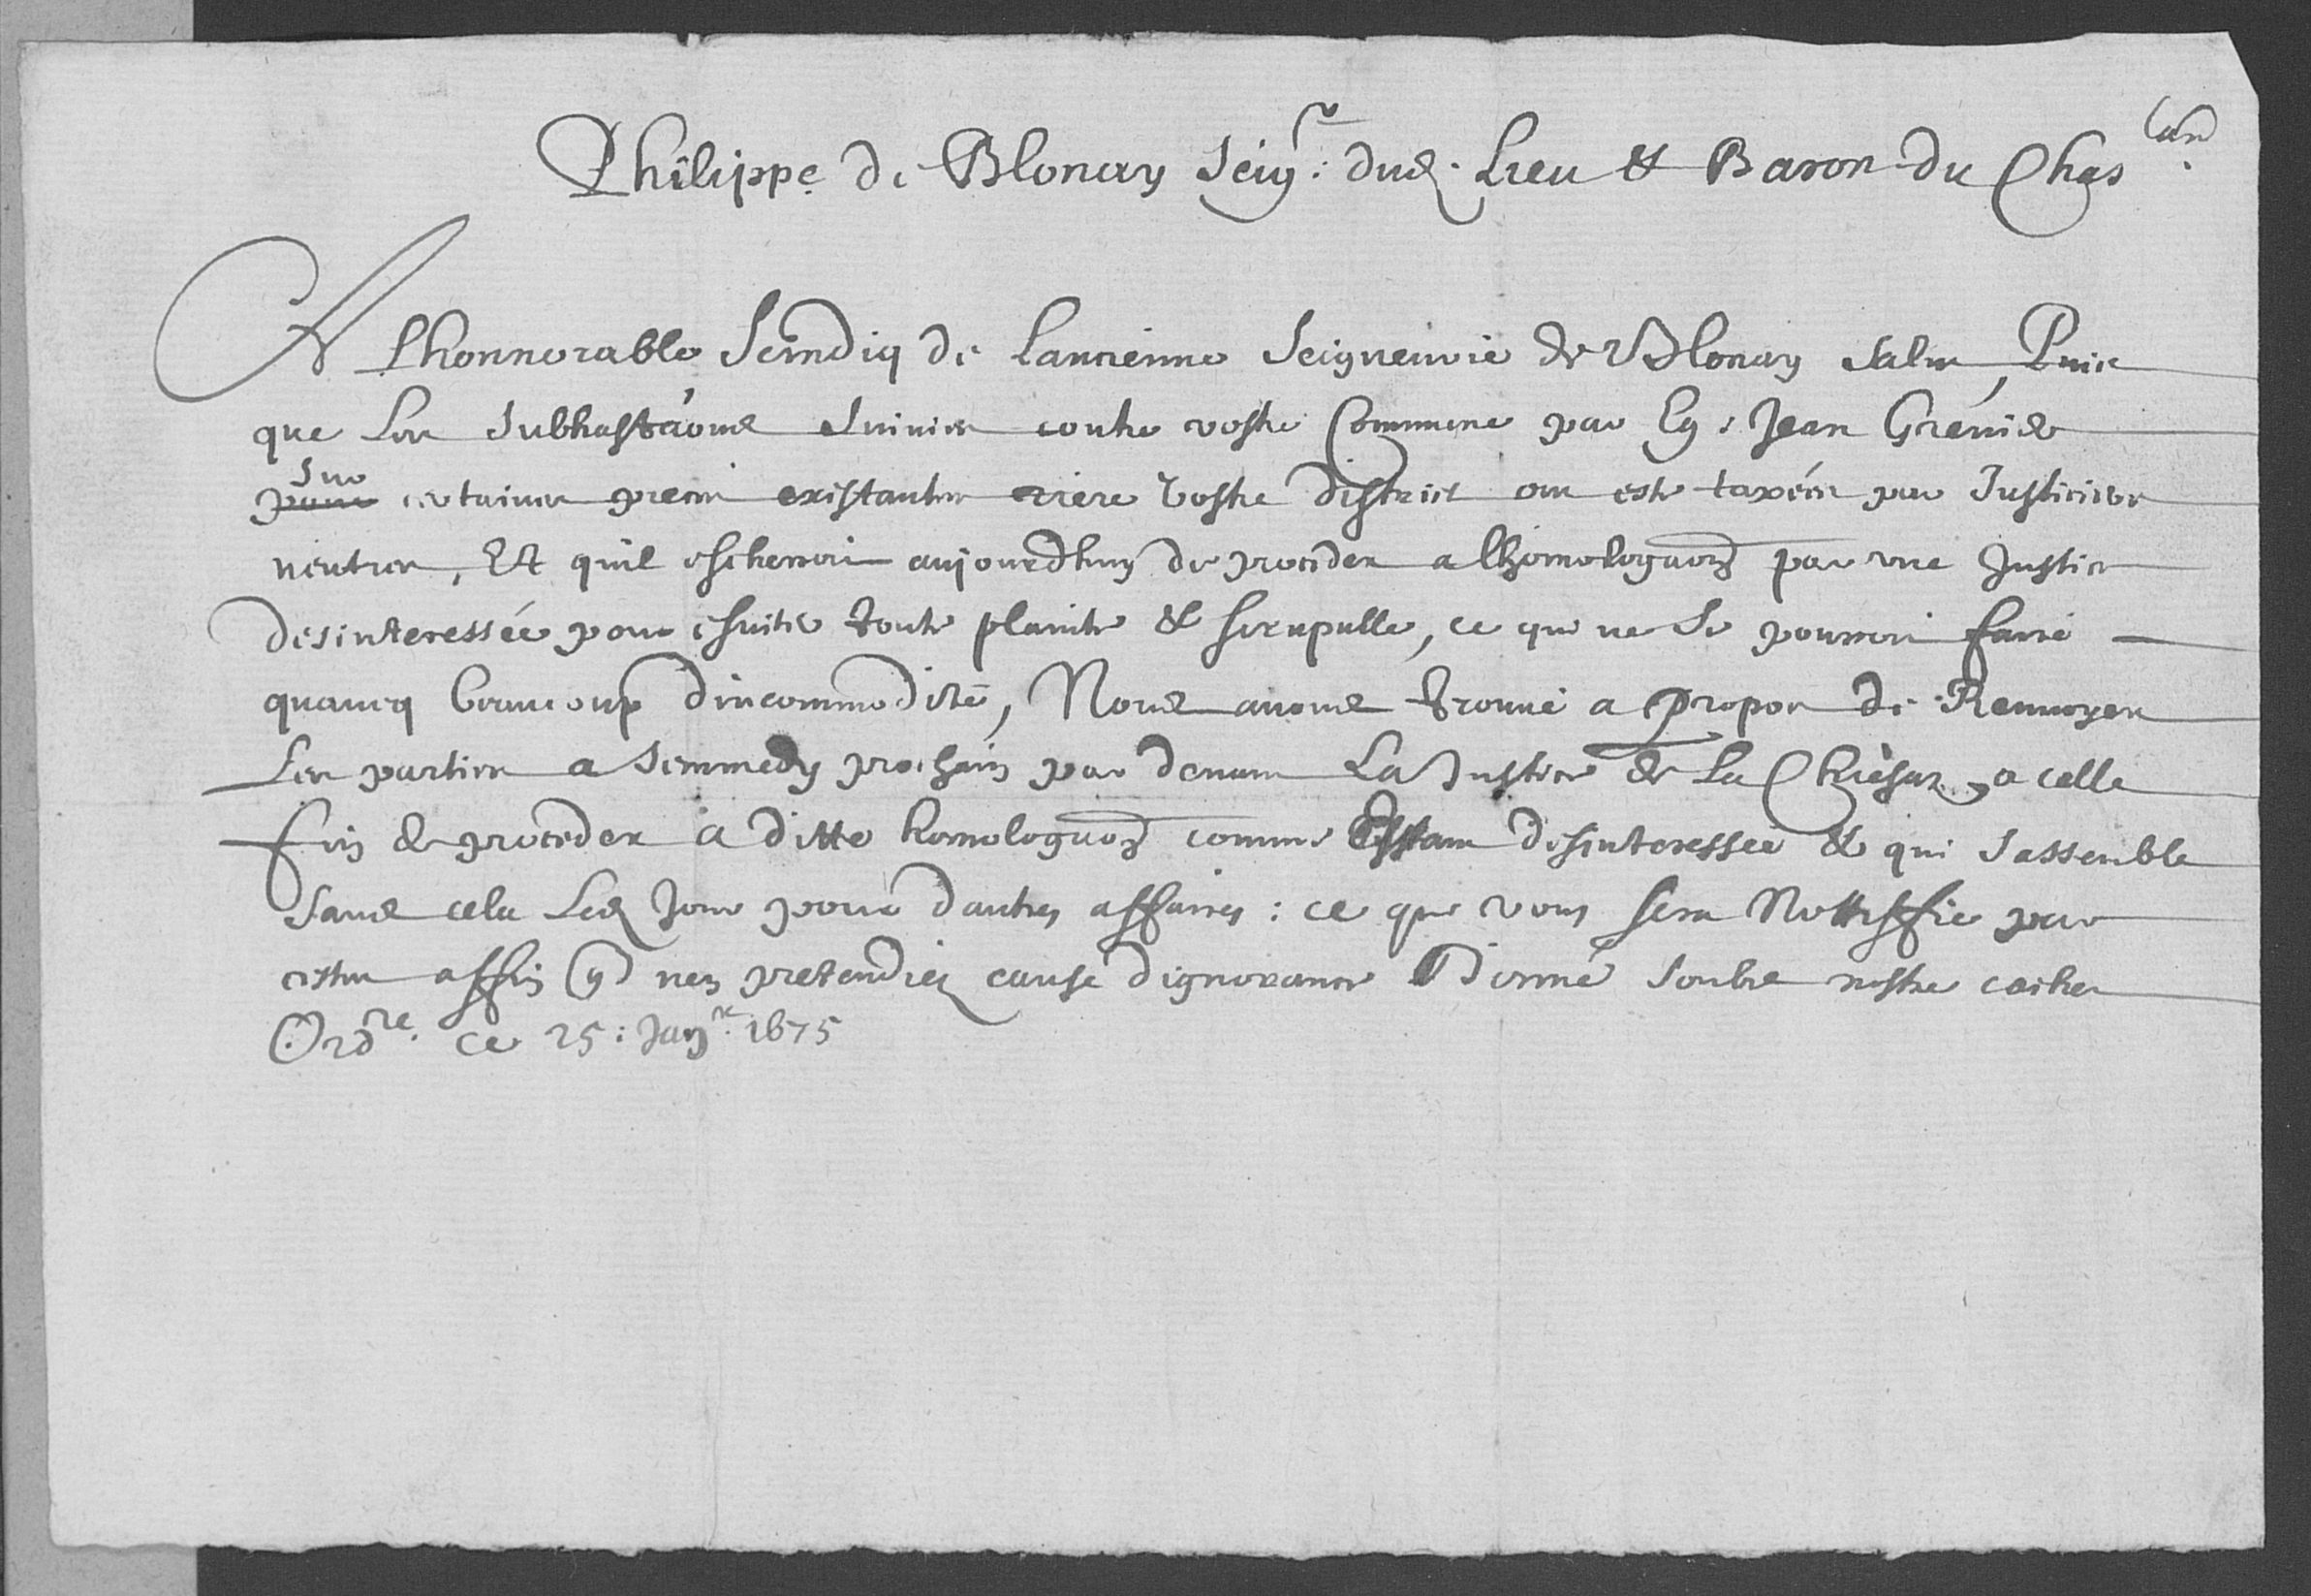 Philippe de Blonay Seigr: dud: Lieu & Baron du Chasard
A Lhonnorable Scindiq de Lancienne Seigneurie de Blonay salut, Puis
que Les Subhastaons Suivies contre vostre Commune par Eg: Jean Grenier
Sur certaines pieces existantes riere Vostre district ont este taxées par Justiciers
neutres, Et quil escherroit aujourdhuy de proceder a lhomologuaon par une Justice
desinteressée pour esviter toute plainte & scrupulle, ce que ne se pourroit faire
quaveq beaucoup dincommodité, Nous avons trouvé a propos de Renvoyer
Les parties a semmedy prochain par devant La Justice de La Chiesaz, a celle
fin de proceder a ditte homologuaon comme Estant desinteressée & qui sassemble
sans cela Led Jour pour dautres affaires: ce que vous sera Nottiffié par
cestes affin q nen pretendiez cause dignorance Donné soubs nostre cachet
Ordre. ce 25: Janre. 1675